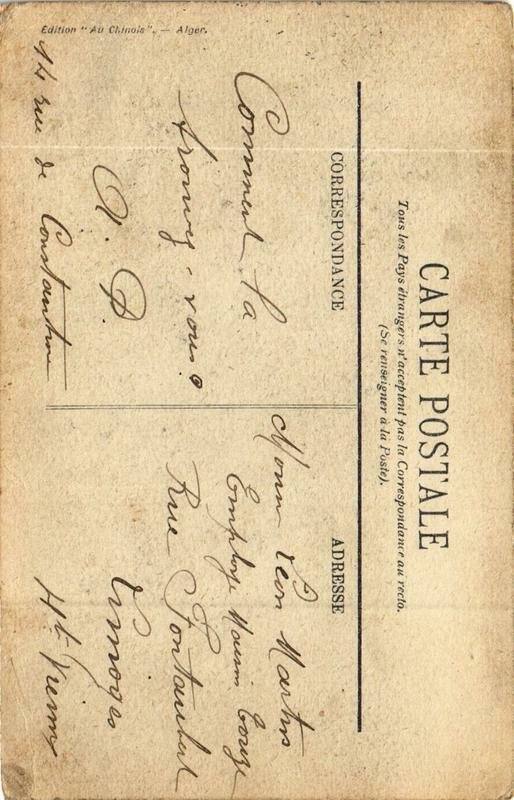 CARTE POSTALE
Tous les Pays étrangers n'acceptent pas la Correspondance au recto.
(Se renseigner à la Poste).
CORRESPONDANCE
Comment la
trouvez-vous?
A. B
14 rue de Constantine
ADRESSE
Léon Martin
Employé
Rue
Limoges
Hte Vienne
Édition "Au Chinois". — Alger.